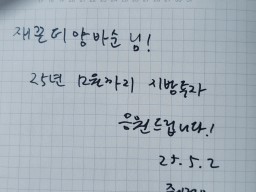 재꿈디 앙마순 님!
25년 12월까지 지방투자
응원드립니다!
25. 5. 2